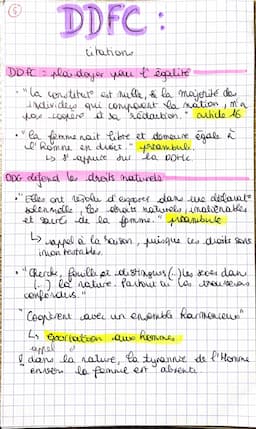 5
DDFC :
citations
DDFC : plaidoyer pour l'égalité
• "La constitut° est nulle, si la majorité des
individus qui composent la nation, n'a
pas coopéré à sa rédaction." article 16
• "La femme nait libre et demeure égale à
l'homme en droit." préambul.
↳ s'appuie sur la DDHC.
ODG défend les droits naturels
• "Elles ont résolu d'exposer dans une déclarat°
solennelle, les droits naturels, inaliénables
et sacrés de la femme." préambule
↳ appel à la raison, puisque ces droits sont
incontestables.
• "Cherche, fouille et distingue (...) les sexes dans
(...) la nature. Partout tu les trouveras
confondus."
"Coopèrent avec un ensemble harmonieux"
↳ exhortation aux hommes
appel à
dans la nature, la tyrannie de l'Homme
envers la femme est absente.